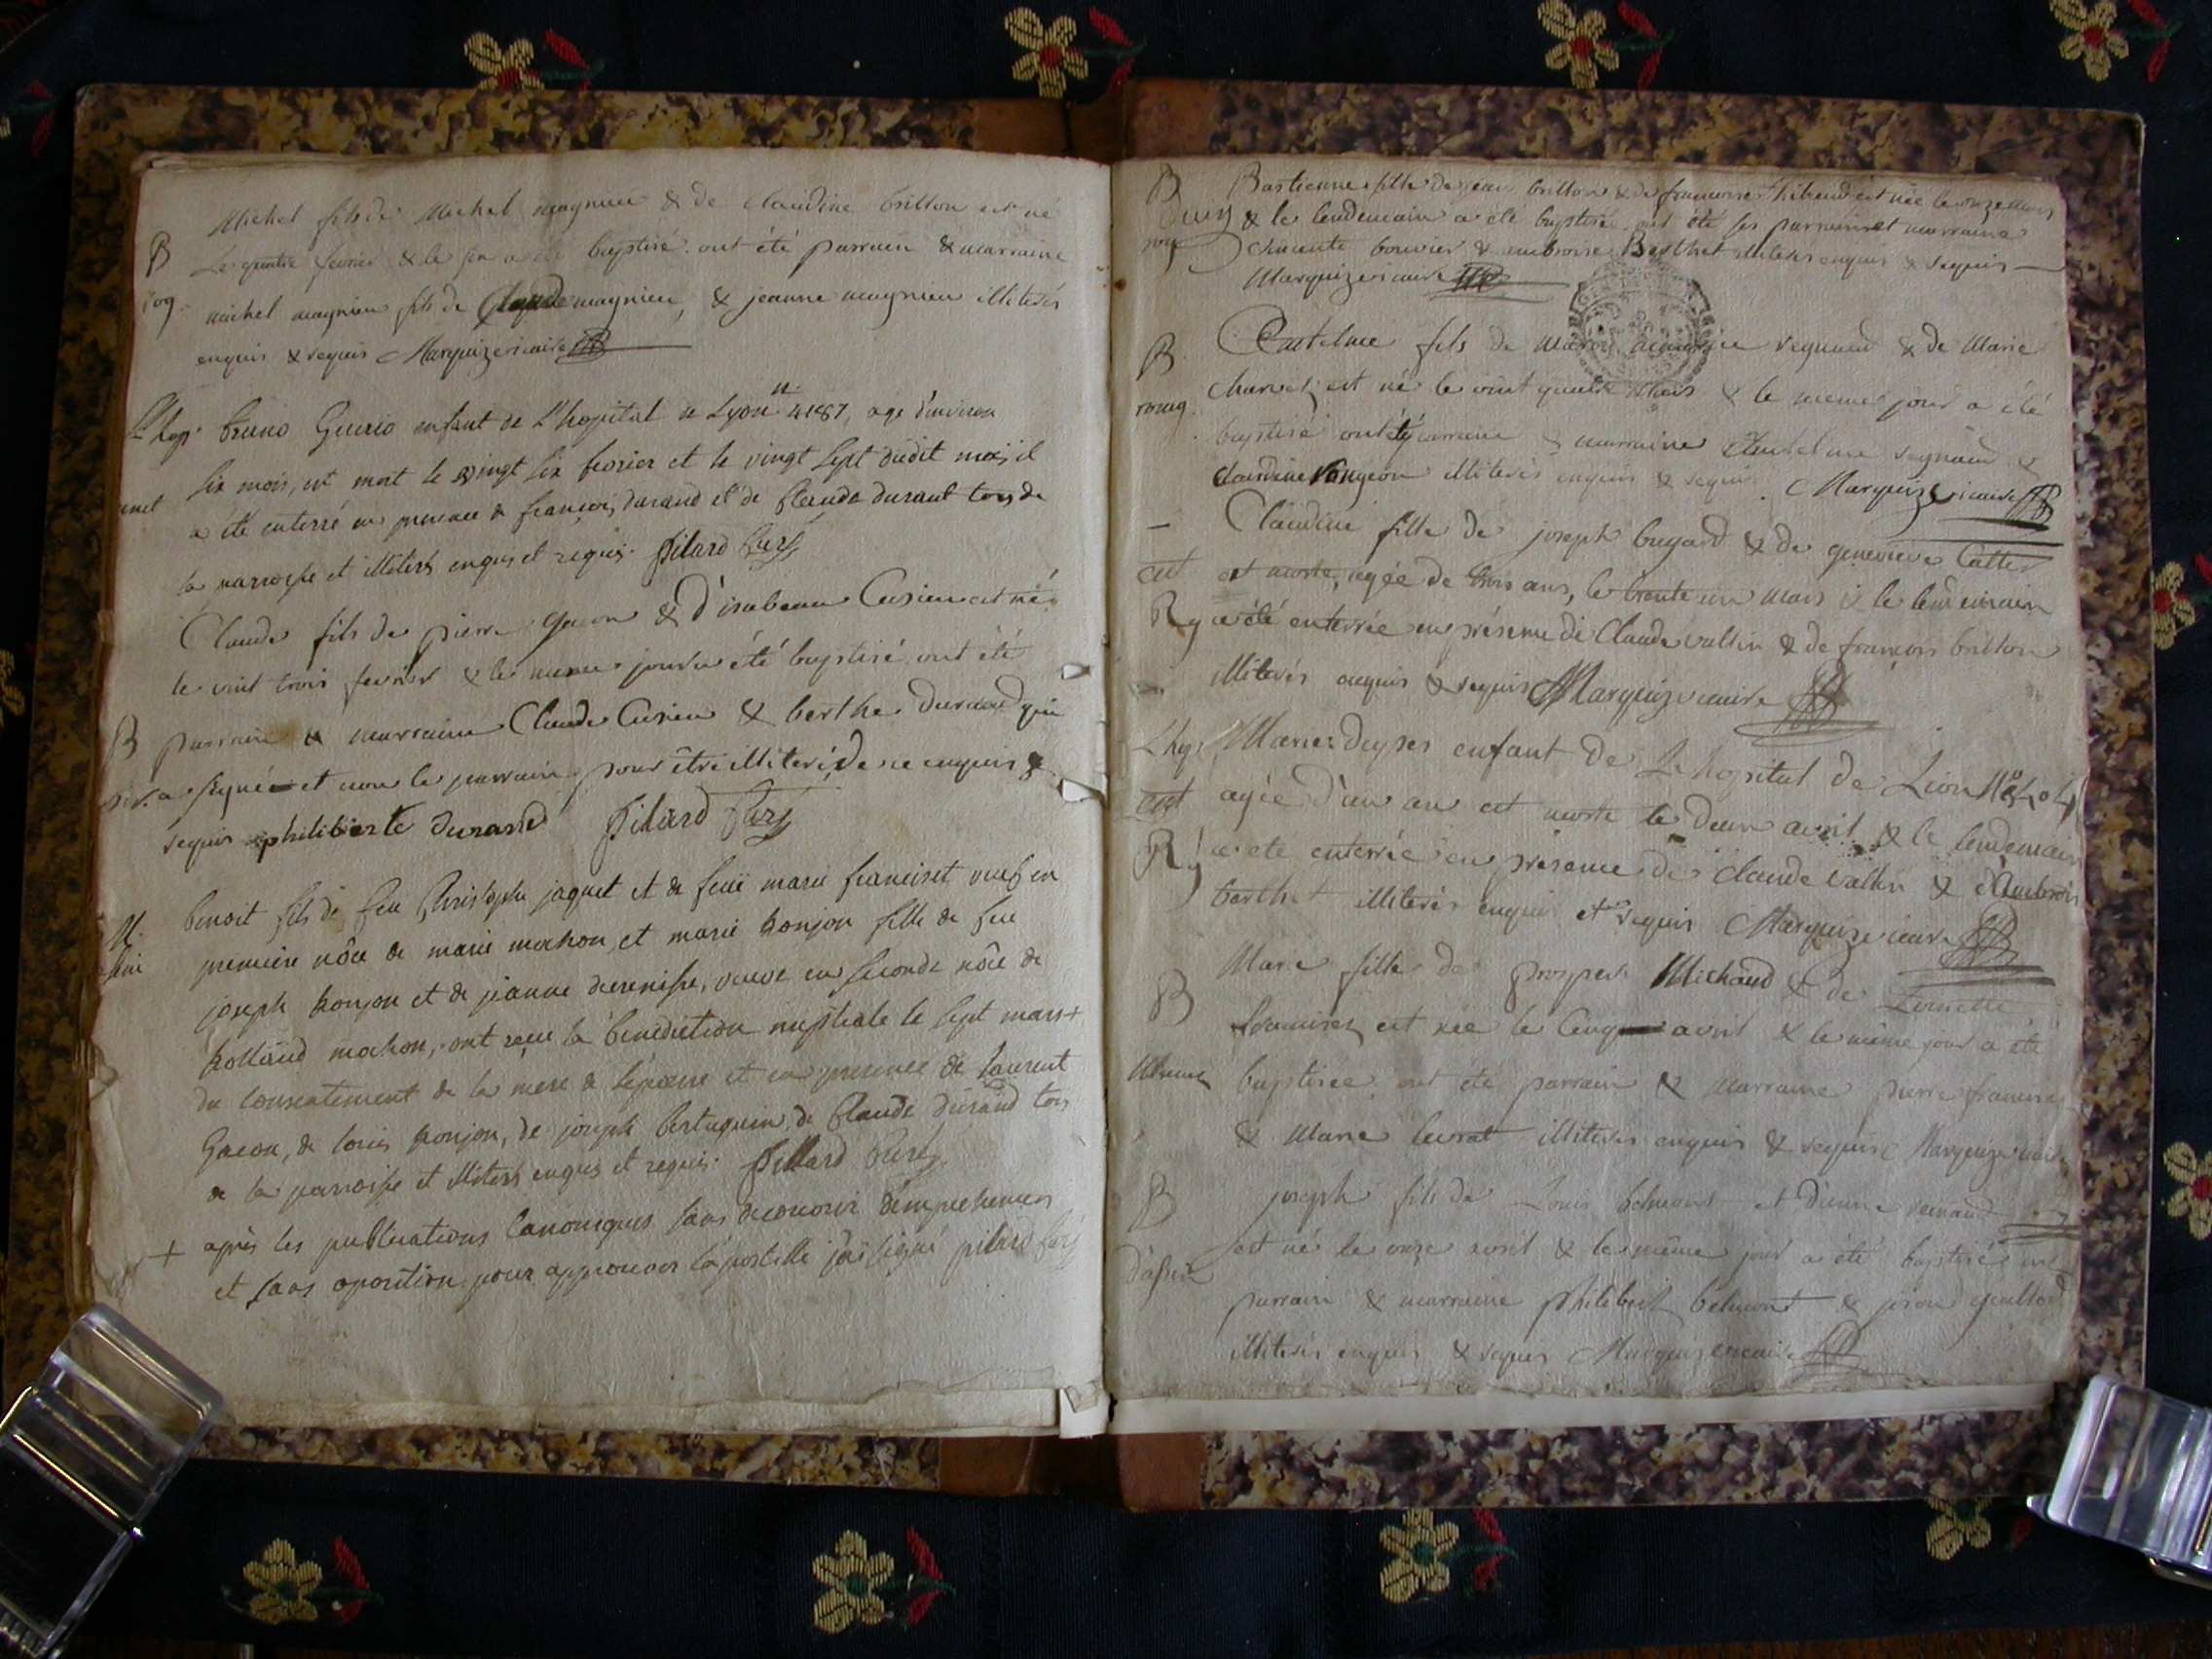 Michel fils de Michel magnieu & de Claudine brillon est né
B
le quatre fevrier & le six a été baptisé. ont été parrain & marraine
rog
michel magnieu fils de Claude magnieu, & jeanne magnieu illiterés
enquis & requis Marquize vicaire
L'hop. bruno Guerio enfant de L'hopital de Lyon n 4187, age d'environ
six mois, est mort le vingt six fevrier et le vingt sept dudit mois, il
a été enterré en presence de françois durand et de Claude durant tous de
la parroisse et illiterés enquis et requis. pilard Curé
Claude fils de pierre gacon & d'isabeau Cusieu est né
le vint trois fevrier & le meme jour a été baptisé ont été
B parrain & marraine Claude Cusieu & berthe durand qui
a signé et non le parrain pour être illiteré, de ce enquis &
requis philiberte durand pilard Curé
M. benoit fils de feu Christophe jaquet et de feuë marie francinet veuf en
premiere nôce de marie mochon, et marie bonjon fille de feu
joseph bonjon et de jeanne , veuve en seconde nôce de
mochon, ont reçu la benediction nuptiale le sept mars +
du consentement de la mere de l'epouse et en presence de laurent
Gacon, de louis bonjon, de joseph de Claude durand tous
de la parroisse et illiterés enquis et requis. pillard Curé
+ après les publications Canoniques sans decouvrir d'empechemens
et sans oposition pour approuver l'apostille j'ai signé pilard Curé
B Bastienne fille de jean brillon & de francoise thibaud est née le onze mars
& le lendemain a été baptisée, ont été ses parrain et marraine
Clmente bouvier & ambroise Berthet illiterés enquis & requis
Marquize vicaire
B Antelme fils de regnaud & de Marie
romag. Charvet, est né le vint quatre Mars & le meme jour a été
baptisé ont été parrain & marraine Antelme regnaud &
Claudine Vangeon illiterés enquis & requis. Marquize vicaire
Claudine fille de joseph bugard & de genevieve Cattet
ent est morte, agée de trois ans, le trente un mars & le lendemain
a été enterrée en présence de Claude vallin & de françois brillon
illiterés enquis & requis Marquize vicaire
L'hop. Marie enfant de L'hopital de Lion
ent agée d'un an est morte le deux avril & le lendemain
a été enterrée en présence de Claude vallin & d'Ambrois
berthet illiterés enquis et requis Marquize vicaire
Marie fille de prosper Michaud & de
B
francinez est née le Cinq avril & le même jour a été
baptisée, ont été parrain & marraine pierre francinez
& Marie levrat illiterés enquis & requis Marquize vicaire
B joseph fils de Louis belmont et d'anne renaud
est né le onze avril & le même jour a été baptisé, ont
parrain & marraine philibert belmont &
illiterés enquis & requis Marquize vicaire